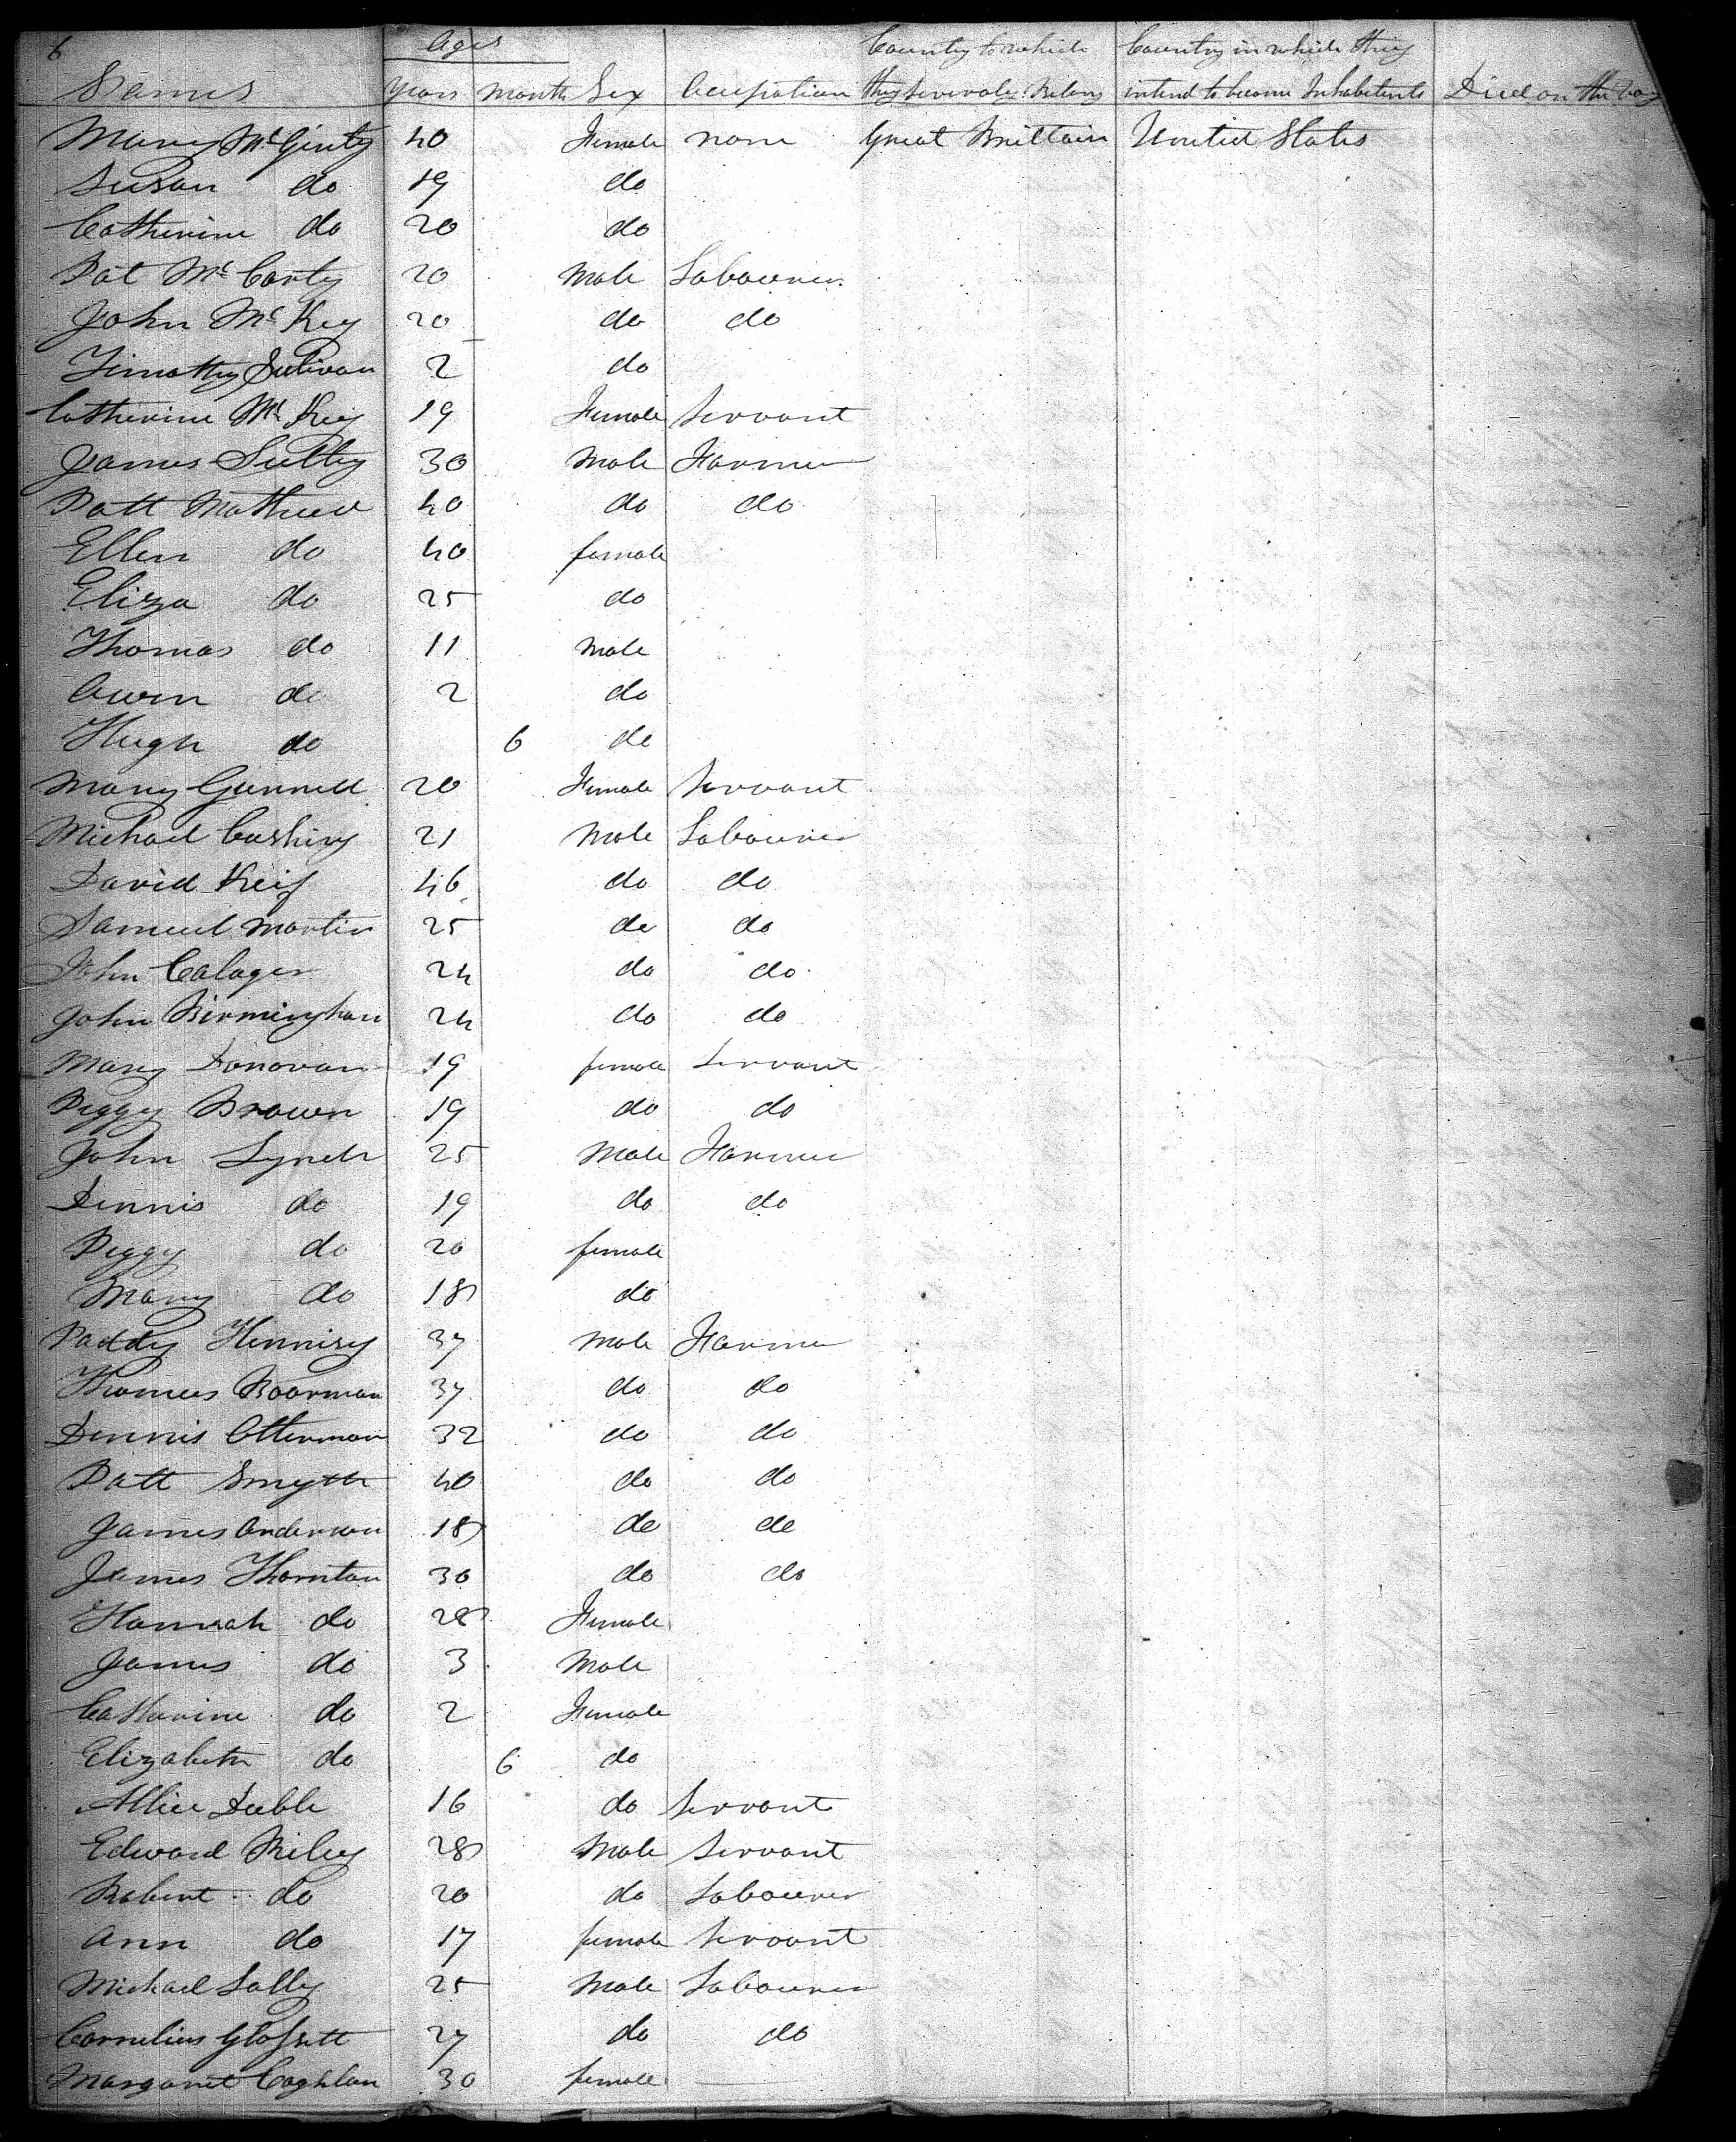 6
Ages
Country to which Country in which they
Names Years Month Sex Occupation they severaly Belong intend to become Inhabitents Died on the Voy
Mary McGinty 40 Female none Great Brittain United States
Susan do 19 do
Catherine do 20 do
Pat McCarty 20 Male Labourer
John McKey 20 do do
Timothy Sulivan 2 do
Catherine McKey 19 Female Servant
James Sulley 30 Male Farmer
Patt Mathued 40 do do
Ellen do 40 female
Eliza do 25 do
Thomas do 11 Male
Owen do 2 do
Hugh do 6 do
Mary Gunnell 20 Female Servant
Michael Cushing 21 Male Labourer
David Keif 46 do do
Samuel Martin 25 do do
John Calager 24 do do
John Birmingham 24 do do
Mary Donovan 19 female Servant
Peggy Brown 19 do do
John Lynch 25 Male Farmer
Dennis do 19 do do
Peggy do 20 female
Mary do 18 do
Paddy Hennisy 37 Male Farmer
Thomas Boorman 37 do do
Dennis Otterman 32 do do
Patt Smyth 40 do do
James Anderson 18 do do
James Thornton 30 do do
Hannah do 28 Female
James do 3 Male
Catharine do 2 Female
Elizabeth do 6 do
Allice Deble 16 do Servant
Edward Riley 28 Male Servant
Robert do 20 do Labourer
Ann do 17 female Servant
Michael Lally 25 Male Labourer
Cornelius Glossett 27 do do
Margaret Coghlan 30 female